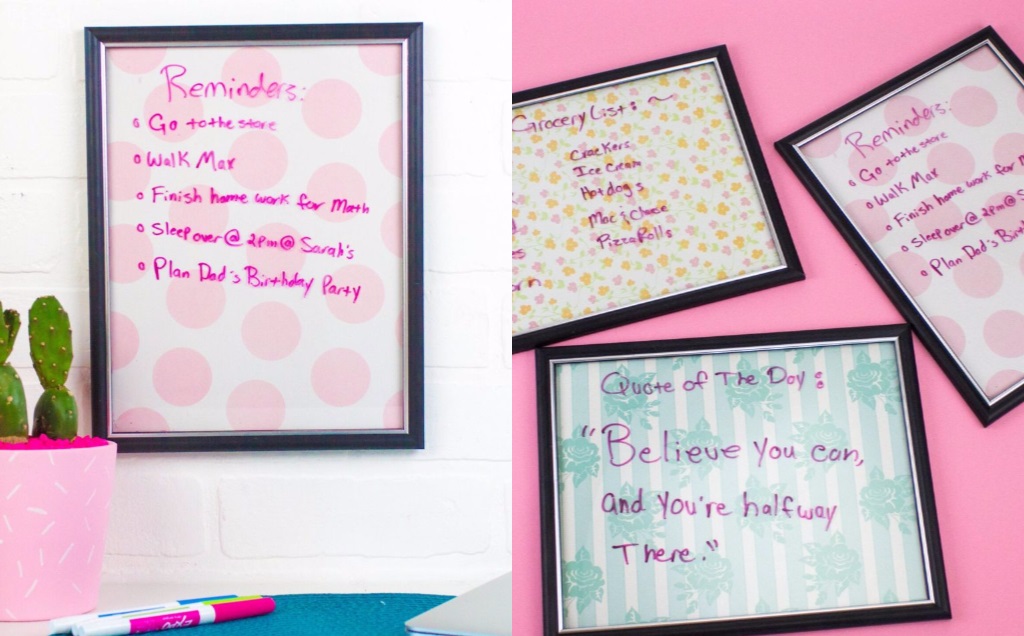 Reminders:
Go to the store
Walk Max
Finish home work for Math
Sleep over@ 2pm@ Sarah's
Plan Dad's Birthday Party
expo
Grocery List:
Crackers
Ice Cream
Hotdogs
Mac & Cheese
Pizza Rolls
Reminders:
Go to the store
Walk Max
Finish home work for
Sleep over@ 2pm@
Plan Dad's
Quote of The Day:
"Believe You can,
and You're halfway
There."